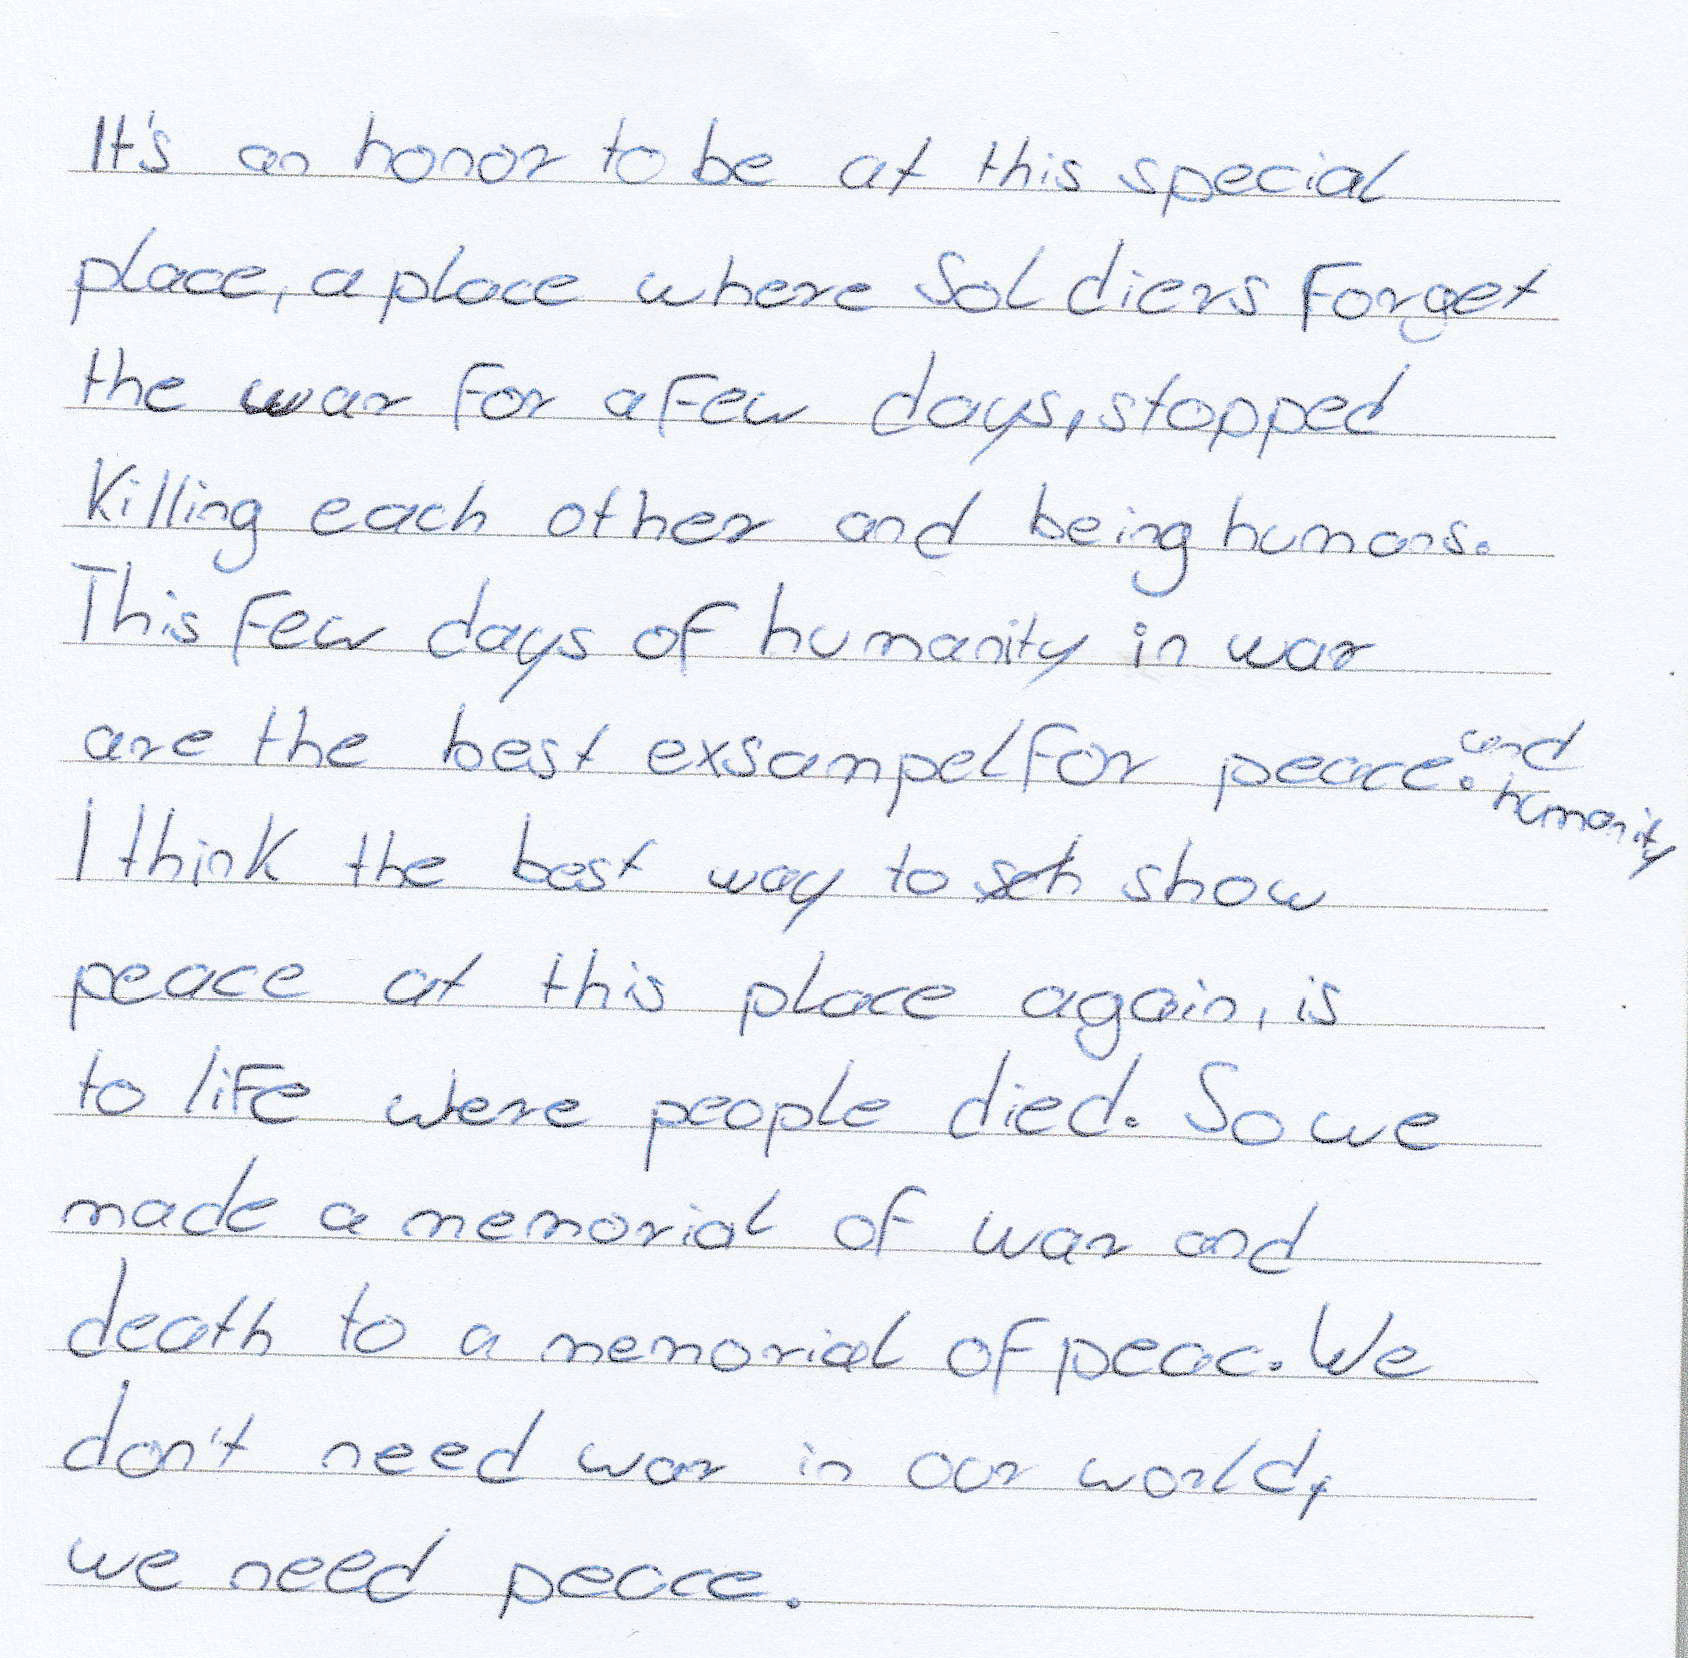 It's an honor to be at this special
place, a place where Soldiers Forget
the war for a few days, stopped
Killing each other and being humans.
This Few days of humanity in war
are the best exsampel for peace. and
humanity
I think the best way to sch show
peace at this place again, is
to life where people died. So we
made a memorial of war and
death to a memorial of peac. We
don't need war in our world,
we need peace.